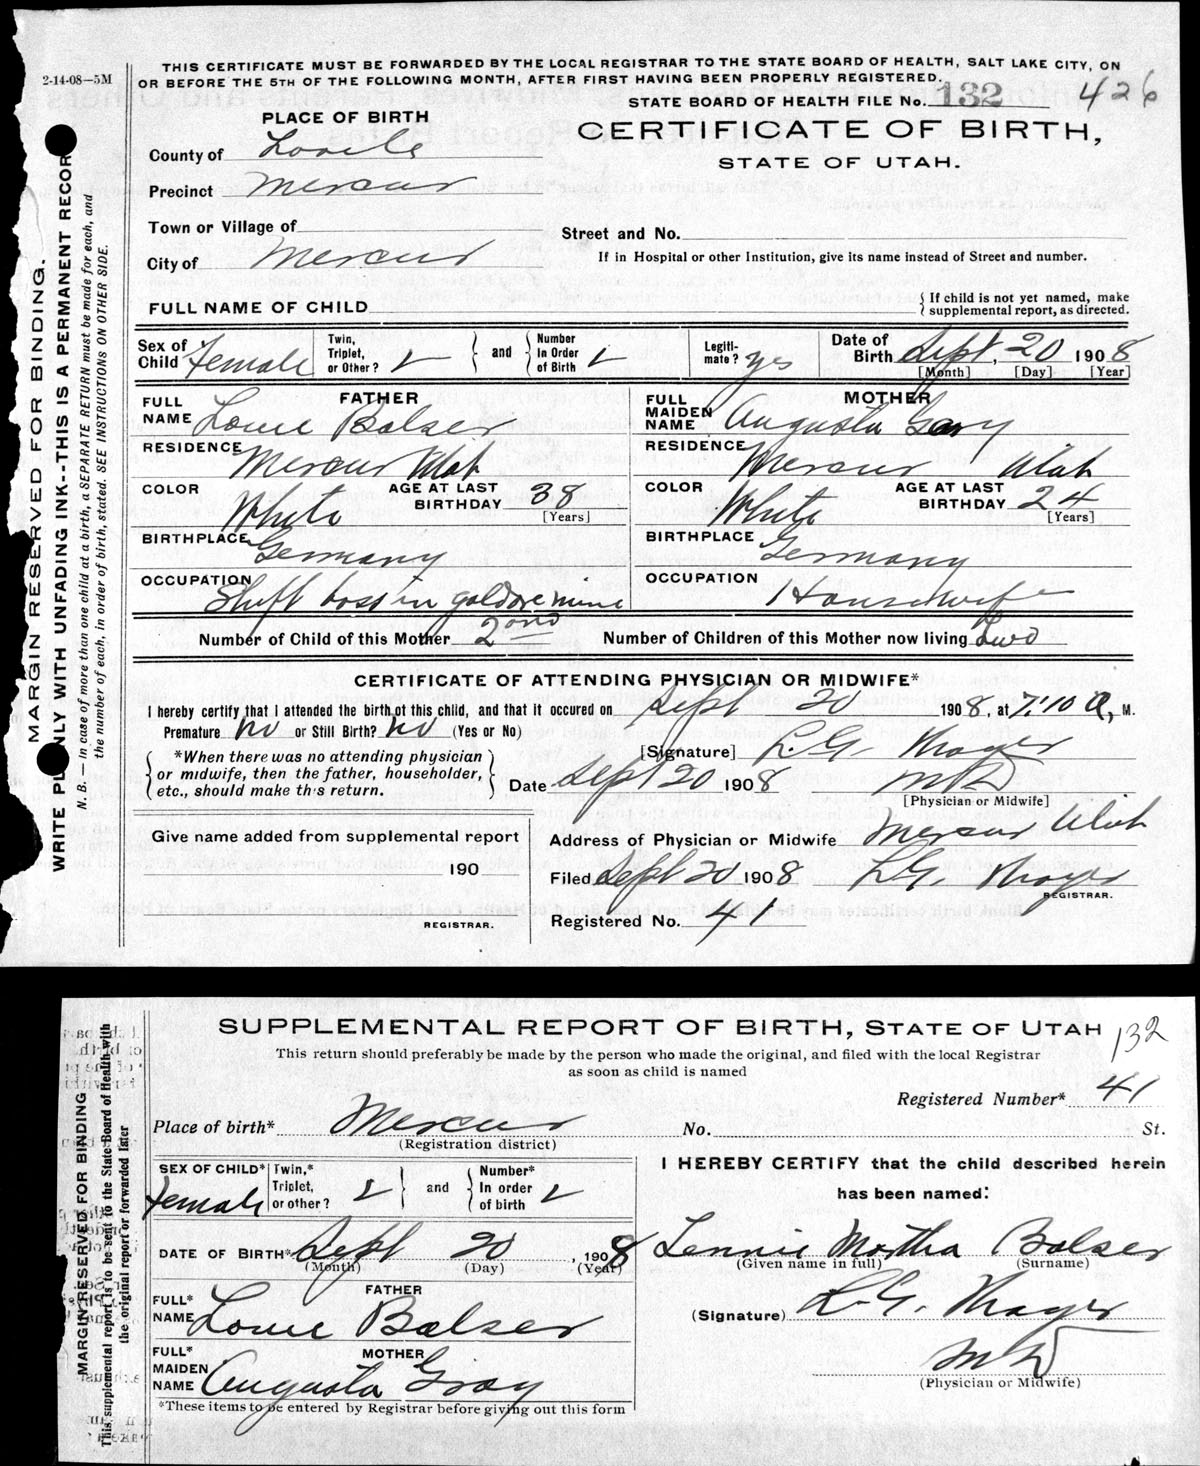 2-14-08—5M
THIS CERTIFICATE MUST BE FORWARDED BY THE LOCAL REGISTRAR TO THE STATE BOARD OF HEALTH, SALT LAKE CITY, ON
OR BEFORE THE 5TH OF THE FOLLOWING MONTH, AFTER FIRST HAVING BEEN PROPERLY REGISTERED.
STATE BOARD OF HEALTH FILE No. 132 426
PLACE OF BIRTH
CERTIFICATE OF BIRTH,
STATE OF UTAH.
County of
Precinct Mercur
Town or Village of
Street and No.
City of Mercur
If in Hospital or other Institution, give its name instead of Street and number.
FULL NAME OF CHILD
{ If child is not yet named, make
supplemental report, as directed.
Sex of Child Female
Twin, Triplet, or Other?
and
Number In Order of Birth
Legiti-mate? yes
Date of Birth Sept. 20 1908
[Month] [Day] [Year]
FATHER
FULL NAME Louie Balser
RESIDENCE Mercur Utah
COLOR White
AGE AT LAST BIRTHDAY 38
[Years]
BIRTHPLACE Germany
OCCUPATION Shift boss in gold ore mine
MOTHER
FULL MAIDEN NAME Augusta
RESIDENCE Mercur Utah
COLOR White
AGE AT LAST BIRTHDAY 24
[Years]
BIRTHPLACE Germany
OCCUPATION Housewife
Number of Child of this Mother 2nd Number of Children of this Mother now living Two
CERTIFICATE OF ATTENDING PHYSICIAN OR MIDWIFE*
I hereby certify that I attended the birth of this child, and that it occured on Sept 20 1908, at 7:10 A, M.
Premature no or Still Birth? no (Yes or No)
[Signature] L.G. Thayer
*When there was no attending physician
or midwife, then the father, householder,
etc., should make this return.
Date Sept 20 1908 MD
[Physician or Midwife]
Give name added from supplemental report
190
REGISTRAR.
Address of Physician or Midwife Mercur Utah
Filed Sept 20 1908 L.G. Thayer
REGISTRAR.
Registered No. 41
MARGIN RESERVED FOR BINDING.
WRITE PLAINLY WITH UNFADING INK--THIS IS A PERMANENT RECORD
N. B. — In case of more than one child at a birth, a SEPARATE RETURN must be made for each, and
the number of each, in order of birth, stated. SEE INSTRUCTIONS ON OTHER SIDE.
SUPPLEMENTAL REPORT OF BIRTH, STATE OF UTAH 132
This return should preferably be made by the person who made the original, and filed with the local Registrar
as soon as child is named
Registered Number* 41
Place of birth* Mercur No. St.
(Registration district)
SEX OF CHILD* Female
Twin,* Triplet, or other?
and
Number* In order of birth
DATE OF BIRTH* Sept 20, 1908
(Month) (Day) (Year)
FATHER
FULL* NAME Louie Balser
MOTHER
FULL* MAIDEN NAME Augusta Gray
*These items to be entered by Registrar before giving out this form
I HEREBY CERTIFY that the child described herein
has been named:
Lennie Martha Balser
(Given name in full) (Surname)
(Signature) L.G. Thayer
MD
(Physician or Midwife)
MARGIN RESERVED FOR BINDING
This supplemental report is to be sent to the State Board of Health with
the original report or forwarded later